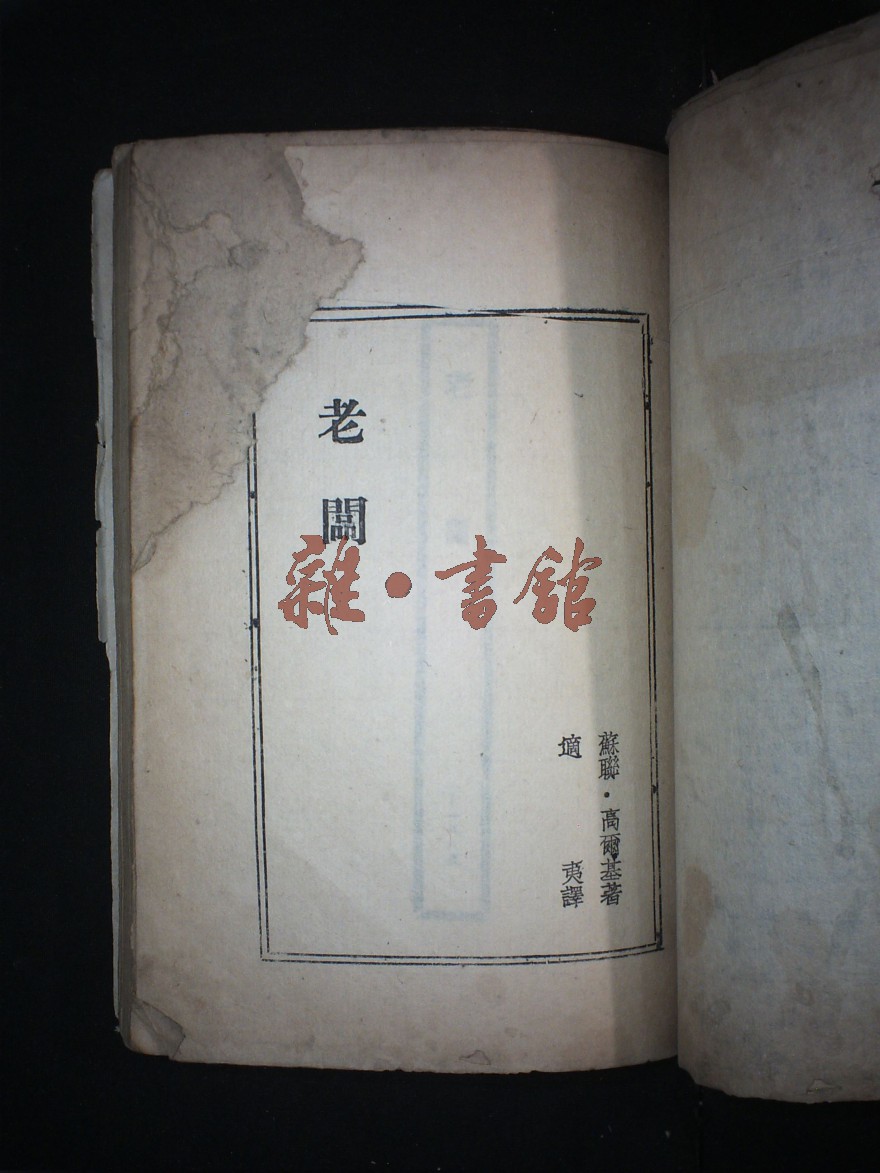 老闆
蘇聯·高爾基著
適夷譯
雜·書館